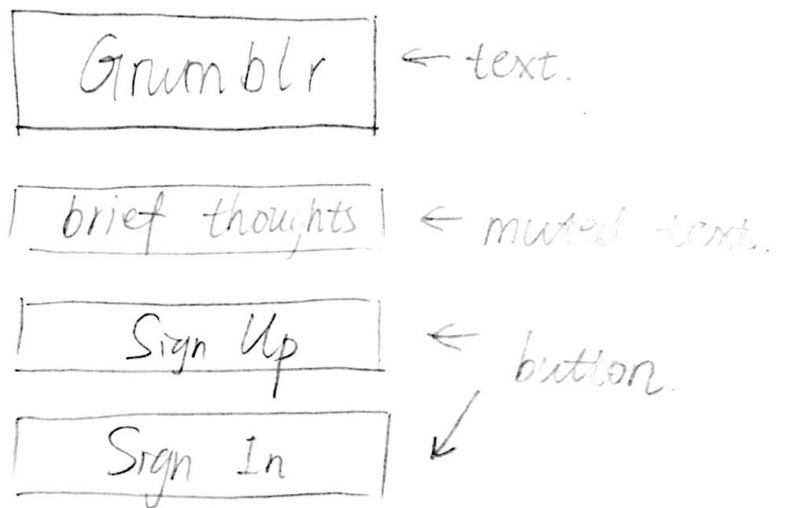 Grumblr ← text.
brief thoughts ← muted text.
Sign Up ←
button.
Sign In